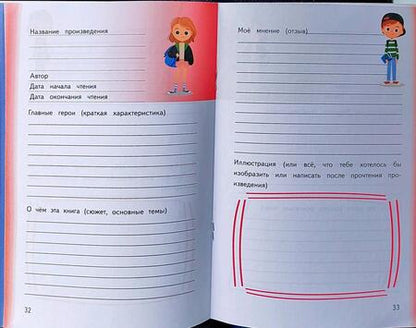 Название произведения
Автор
Дата начала чтения
Дата окончания чтения
Главные герои (краткая характеристика)
О чём эта книга (сюжет, основные темы)
32
Моё мнение (отзыв)
Иллюстрация (или всё, что тебе хотелось бы
изобразить или написать после прочтения про-
изведения)
33